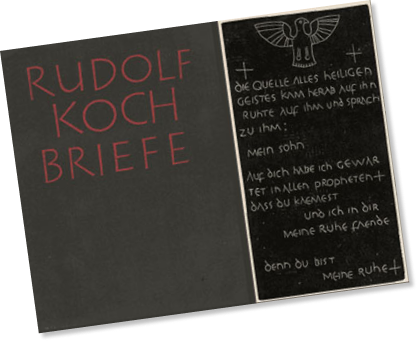 RUDOLF
KOCH
BRIEFE
DIE QUELLE ALLES HEILIGEN
GEISTES KAM HERAB AUF IHN
RUHTE AUF IHM UND SPRACH
ZU IHM:
MEIN SOHN
AUF DICH HABE ICH GEWAR
TET IN ALLEN PROPHETEN
DASS DU KAEMEST
UND ICH IN DIR
MEINE RUHE FAENDE
DENN DU BIST
MEINE RUHE